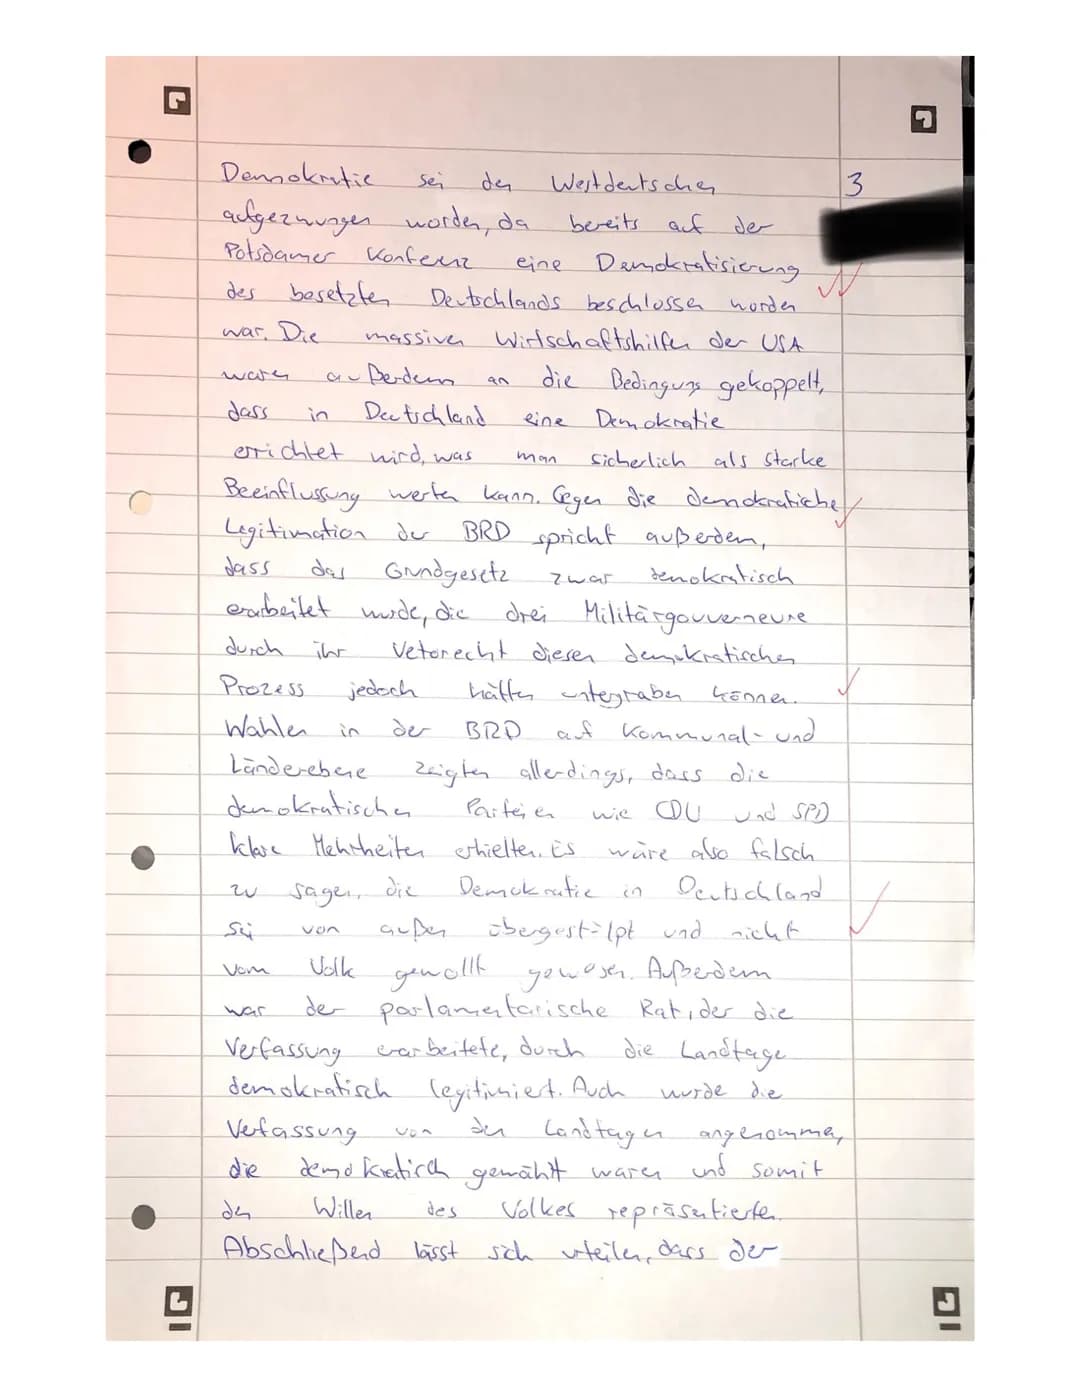 Demokratie sei den Westdeutschen
3
aufgezwungen worden, da bereits auf der
Potsdamer Konferenz eine Demokratisierung
des besetzten Deutschlands beschlossen worden
war. Die massiven Wirtschaftshilfen der USA
waren außerdem an die Bedingung gekoppelt,
dass in Deutschland eine Demokratie
errichtet wird, was man sicherlich als starke
Beeinflussung werten kann. Gegen die demokratische
Legitimation der BRD spricht außerdem,
dass das Grundgesetz zwar demokratisch
erarbeitet wurde, die drei Militärgouverneure
durch ihr Vetorecht diesen demokratischen
Prozess jedoch hätten untergraben können.
Wahlen in der BRD auf Kommunal- und
Länderebene zeigten allerdings, dass die
demokratischen Parteien wie CDU und SPD
klare Mehrheiten erhielten. Es wäre also falsch
zu sagen, die Demokratie in Deutschland
sei von außen übergestülpt und nicht
vom Volk gewollt gewesen. Außerdem
war der parlamentarische Rat, der die
Verfassung erarbeitete, durch die Landtage
demokratisch legitimiert. Auch wurde die
Verfassung von den Landtagen angenommen,
die demokratisch gewählt waren und somit
den Willen des Volkes repräsentierten.
Abschließend lässt sich urteilen, dass der